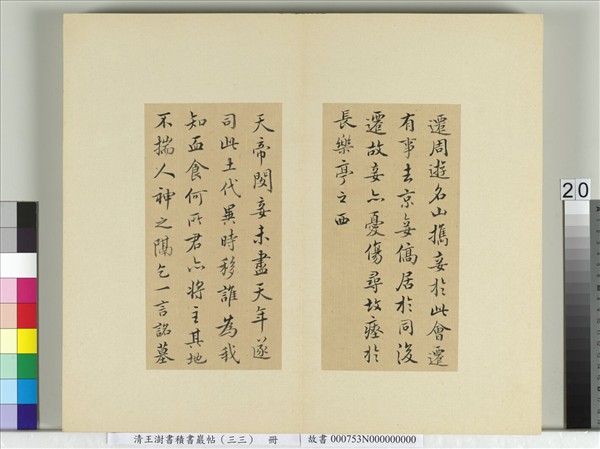 遷周遊名山攜妾於此會遷
有事去京妾僑居於同後
遷故妾亦憂傷尋故瘞於
長樂亭之西
天帝閔妾未盡天年遂
司此土代異時移誰為我
知血食何所君亦將主其地
不揣人神之隔乞一言銘墓
20
清王澍書積書巖帖（三三） 冊 故書 000753N000000000